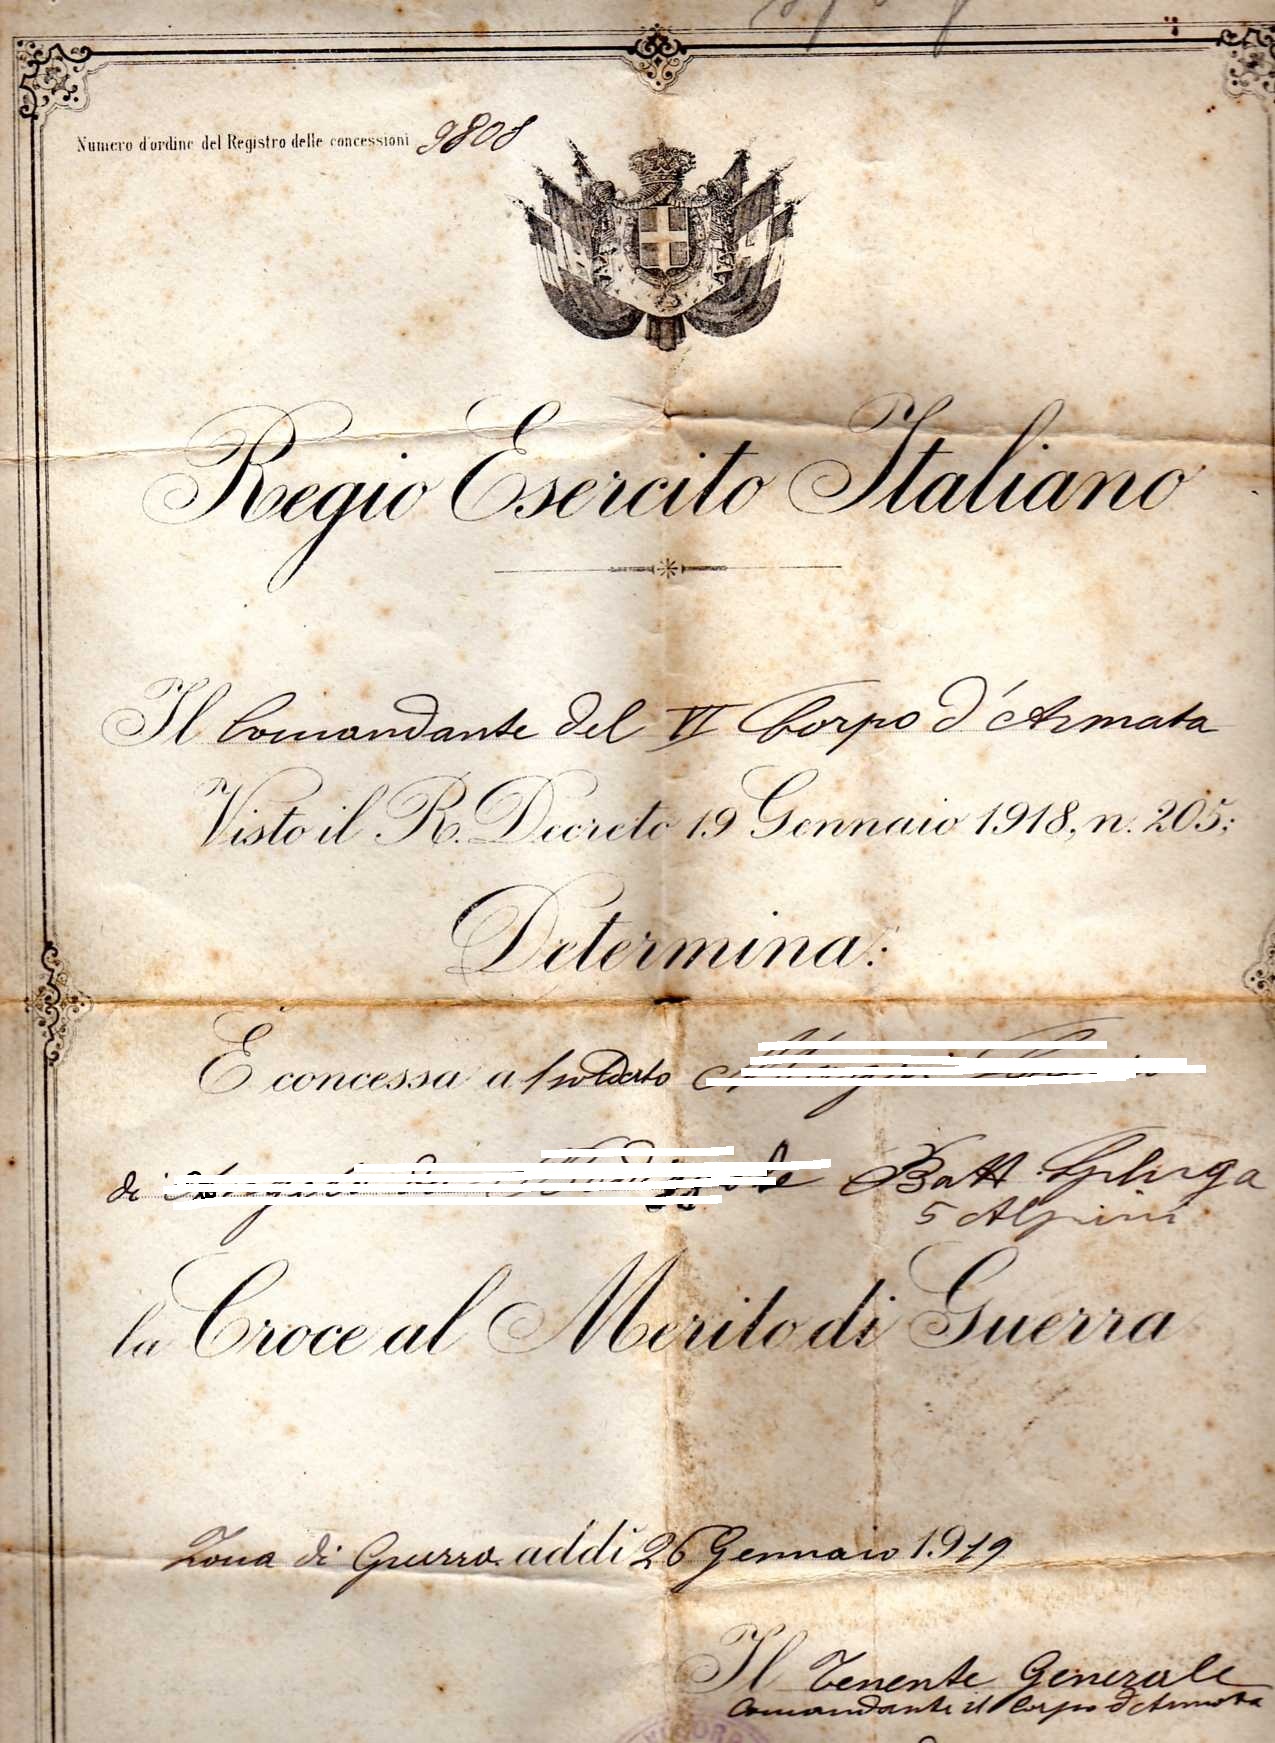 Numero d'ordine del Registro delle concessioni 9808
Regio Esercito Italiano
Il Comandante del VI Corpo d'Armata
Visto il R. Decreto 19 Gennaio 1918, n. 205;
Determina:
È concessa a soldato
di Batt Spluga
5 Alpini
la Croce al Merito di Guerra
Zona di Guerra addì 26 Gennaio 1919
Il Tenente Generale
Comandante il Corpo d'Armata